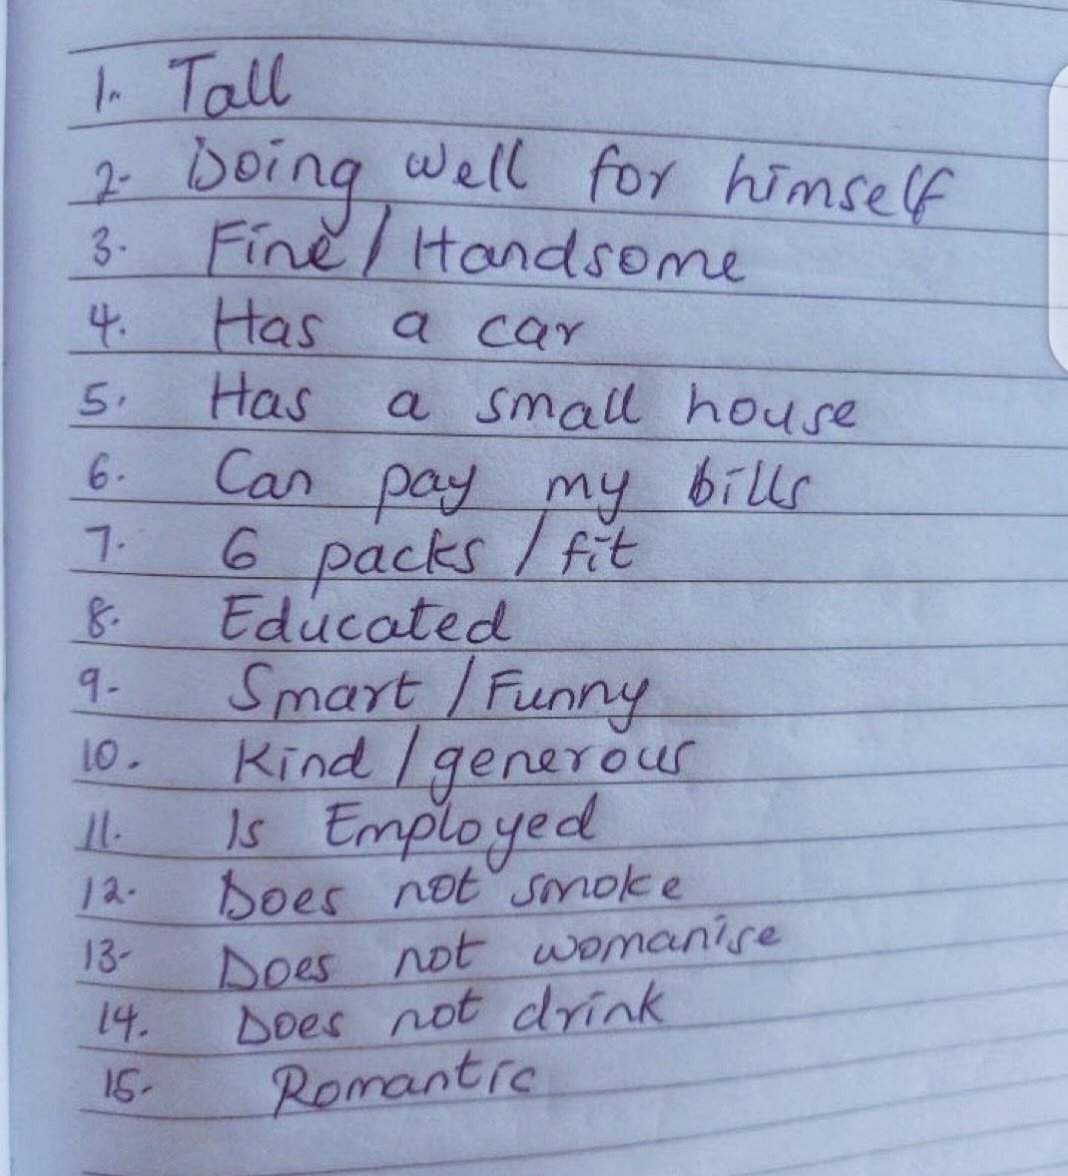 1. Tall
2. Doing well for himself
3. Fine/Handsome
4. Has a car
5. Has a small house
6. Can pay my bills
7. 6 packs/fit
8. Educated
9. Smart/Funny
10. Kind/generous
11. Is Employed
12. Does not smoke
13. Does not womanise
14. Does not drink
15. Romantic